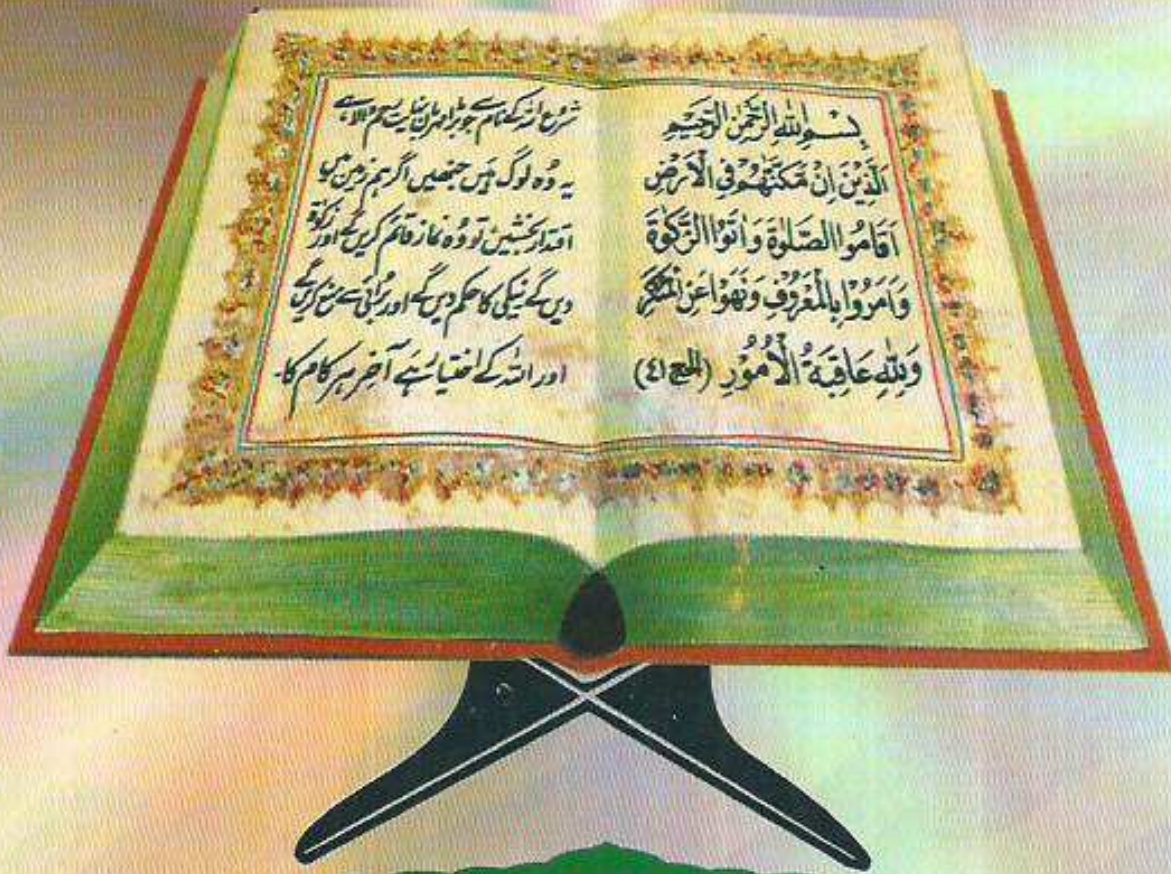 بِسْمِ اللهِ الرَّحْمٰنِ الرَّحِيْمِ
اَلَّذِيْنَ اِنْ مَّكَّنّٰهُمْ فِي الْاَرْضِ
اَقَامُوا الصَّلٰوةَ وَاٰتَوُا الزَّكٰوةَ
وَاَمَرُوْا بِالْمَعْرُوْفِ وَنَهَوْا عَنِ الْمُنْكَرِ
وَلِلّٰهِ عَاقِبَةُ الْاُمُوْرِ (الحج ٤١)
شروع اللہ کے نام سے جو بڑا مہربان نہایت رحم والا ہے
یہ وُہ لوگ ہیں جنھیں اگر ہم زمین میں
اقتدار بخشیں تو وُہ نماز قائم کریں گے اور زکوٰۃ
دیں گے نیکی کا حکم دیں گے اور بُرائی سے منع کریں گے
اور اللہ کے اختیار ہے آخر ہر کام کا۔